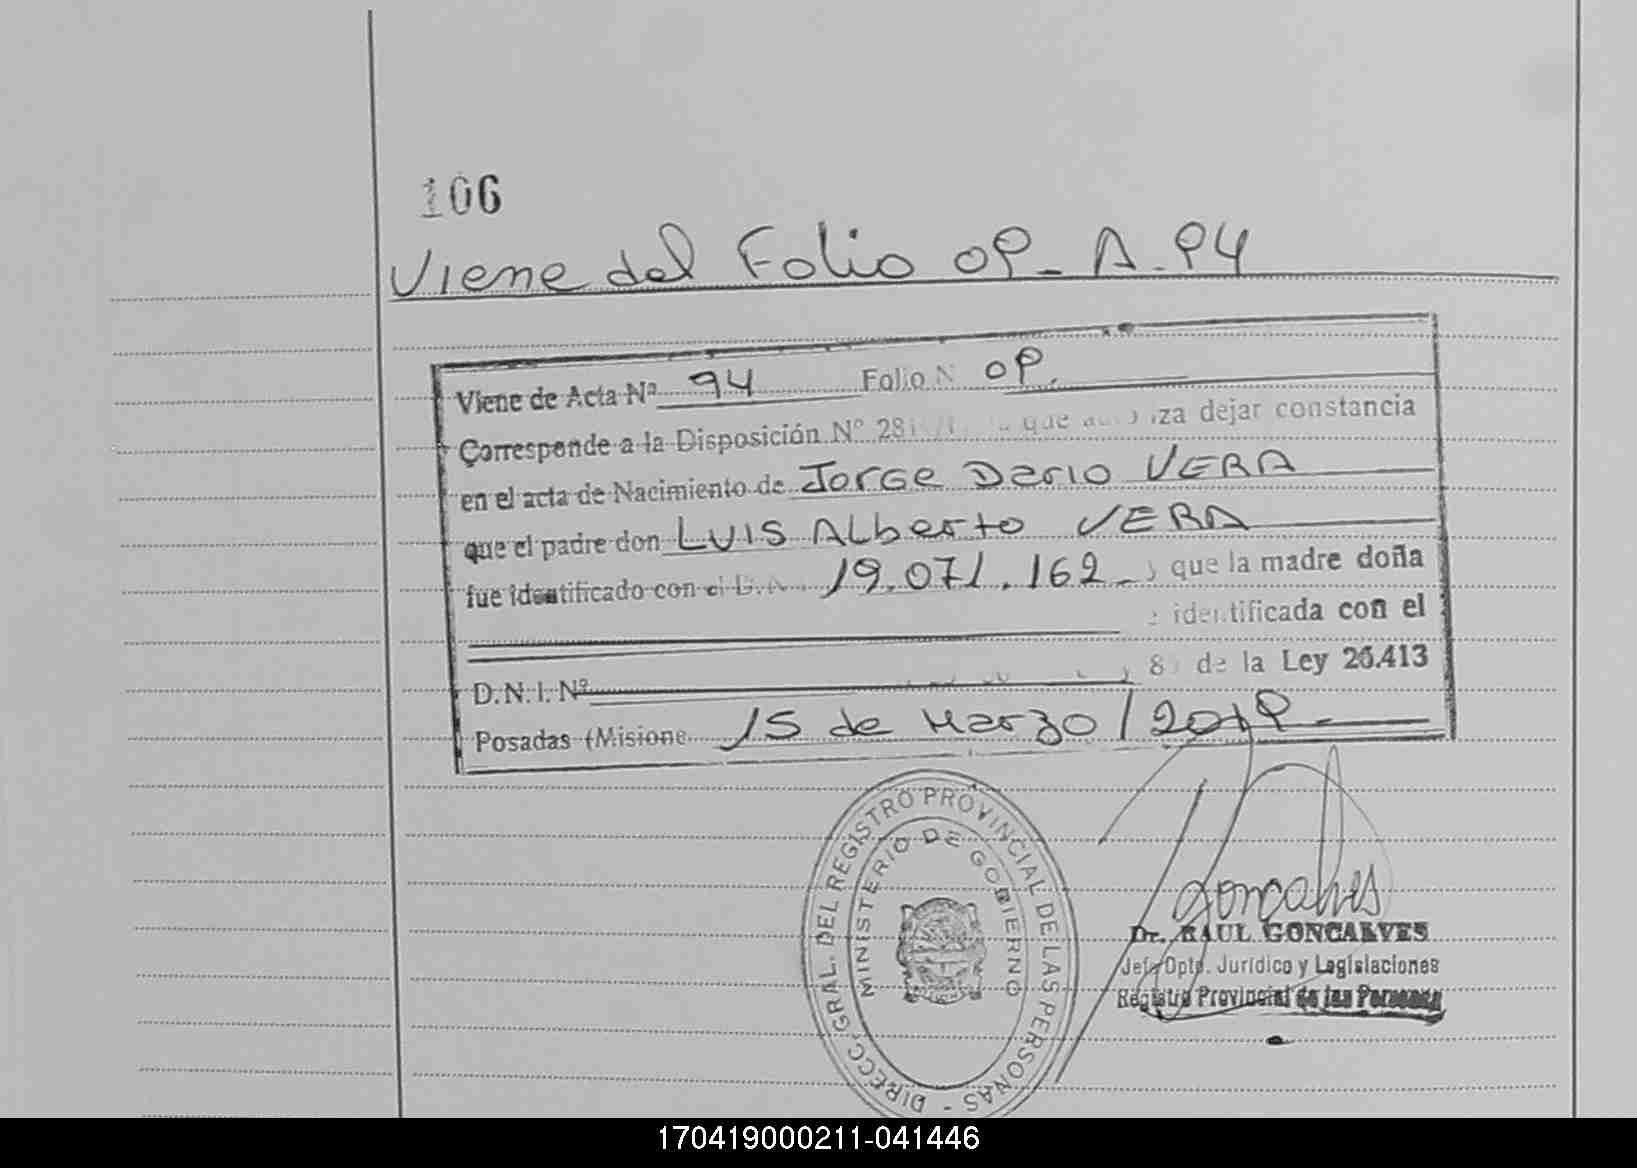 106
Viene del Folio 09 - A - 94
Viene de Acta Nº 94 Folio N 09.
Corresponde a la Disposición Nº 281 que autoriza dejar constancia
en el acta de Nacimiento de Jorge Dario VERA
que el padre don LUIS Alberto VERA
fue identificado con el D.N. 19.071.162 - y que la madre doña
identificada con el
D.N.I. Nº 8 de la Ley 26.413
Posadas (Misione 15 de Marzo / 2019 -
DIRECC. GRAL. DEL REGISTRO PROVINCIAL DE LAS PERSONAS -
MINISTERIO DE GOBIERNO
Goncalves
Dr. RAUL GONCALVES
Jefe Dpto. Jurídico y Legislaciones
Registro Provincial de las Personas
170419000211-041446